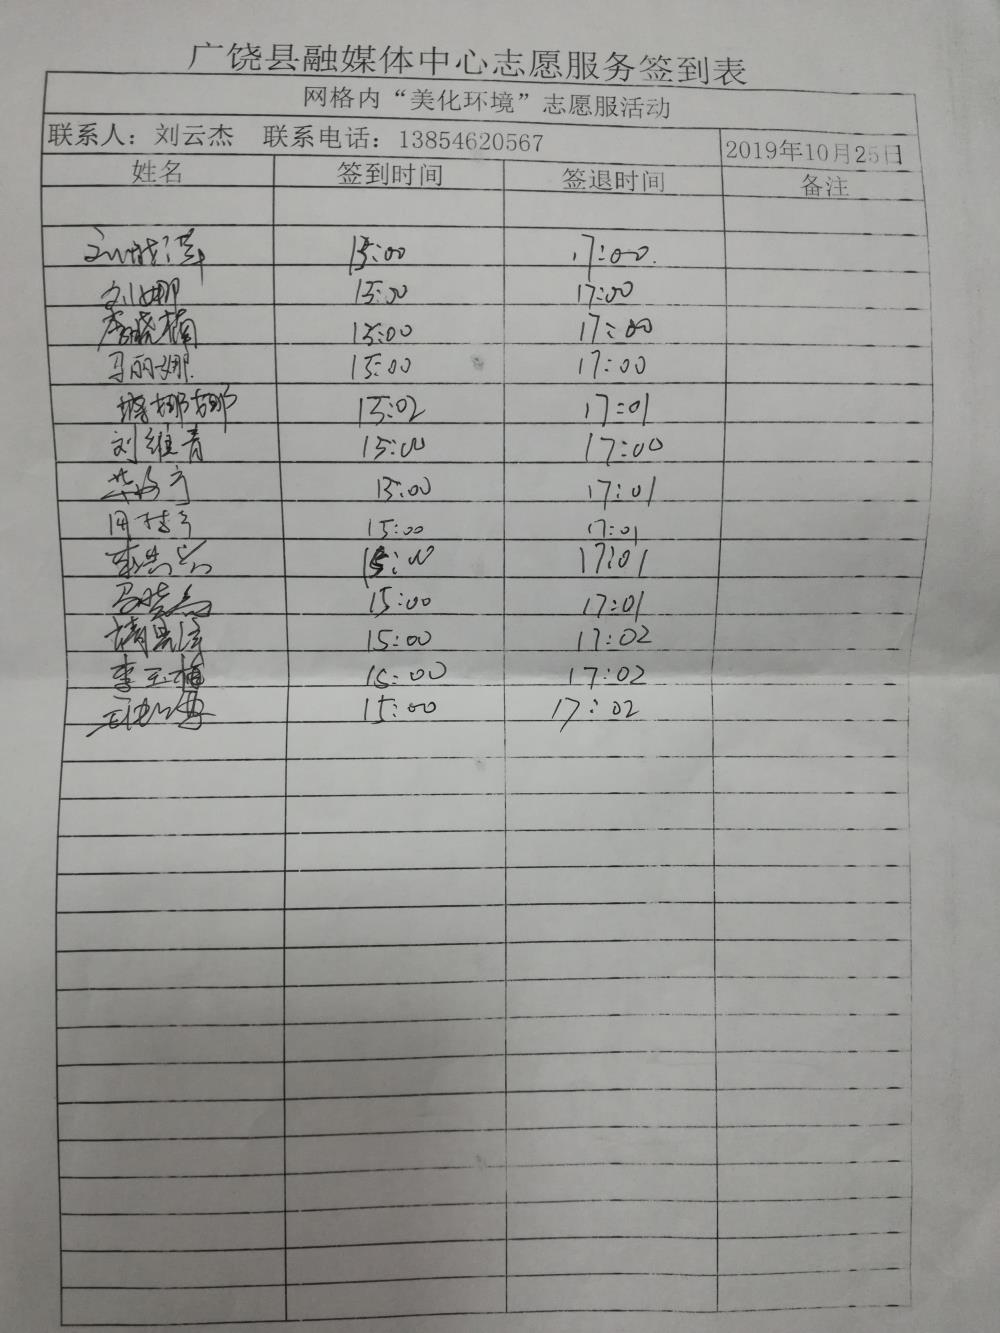 广饶县融媒体中心志愿服务签到表
网格内“美化环境”志愿服活动
联系人：刘云杰 联系电话：13854620567 2019年10月25日
姓名 签到时间 签退时间 备注
15:00 17:00.
刘娜 15:00 17:00
李晓楠 15:00 17:00
马丽娜. 15:00 17:00
娜娜 15:02 17:01
刘维青 15:00 17:00
15:00 17:01
15:00 17:01
15:00 17:01
15:00 17:01
15:00 17:02
李玉梅 15:00 17:02
15:00 17:02